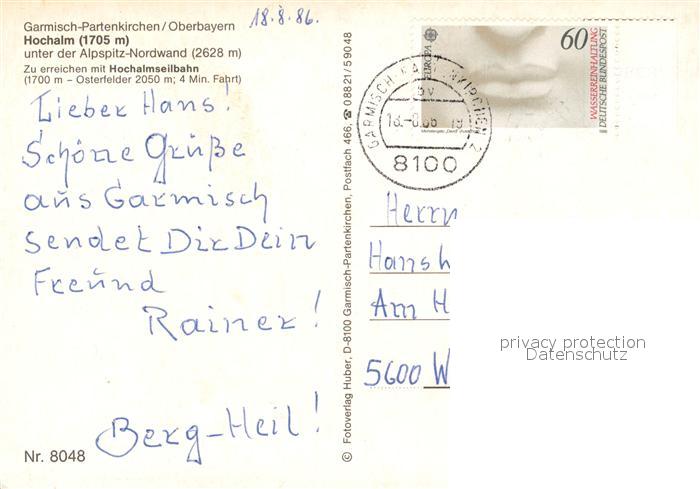 Garmisch-Partenkirchen/Oberbayern
Hochalm (1705 m)
unter der Alpspitz-Nordwand (2628 m)
Zu erreichen mit Hochalmseilbahn
(1700 m – Osterfelder 2050 m; 4 Min. Fahrt)
18.8.86.
Lieber Hans!
Schöne Grüße
aus Garmisch
sendet Dir Dein
Freund
Rainer!
Berg-Heil!
Nr. 8048
© Fotoverlag Huber, D-8100 Garmisch-Partenkirchen, Postfach 466, ☎ 08821/59048
EUROPA
60
WASSERREINHALTUNG
DEUTSCHE BUNDESPOST
GARMISCH-PARTENKIRCHEN 2
18.-8.86
8100
Herrn
Hansh
Am H
5600 W
privacy protection
Datenschutz